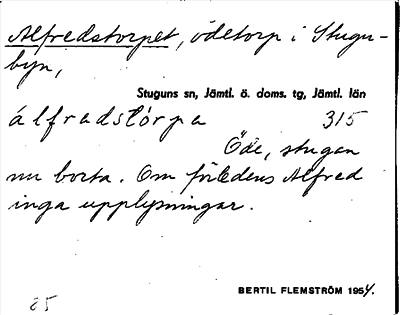 Alfredstorpet, ödetorp i Stugu-
byn,
Stuguns sn, Jämtl. ö. doms. tg, Jämtl. län
álfradstòrpa 315
Öde, stugan
nu borta. Om förledens Alfred
inga upplysningar.
BERTIL FLEMSTRÖM 1954.
85